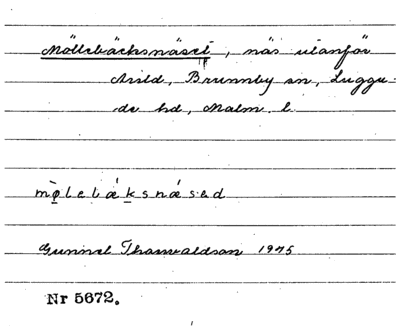 Möllebäcksnäset, näs utanför
Arild, Brunnby sn, Luggu-
de hd, Malm. l.
mø̀lebǽksnǽsəd
Gunnel Thorvaldson 1975
Nr 5672.